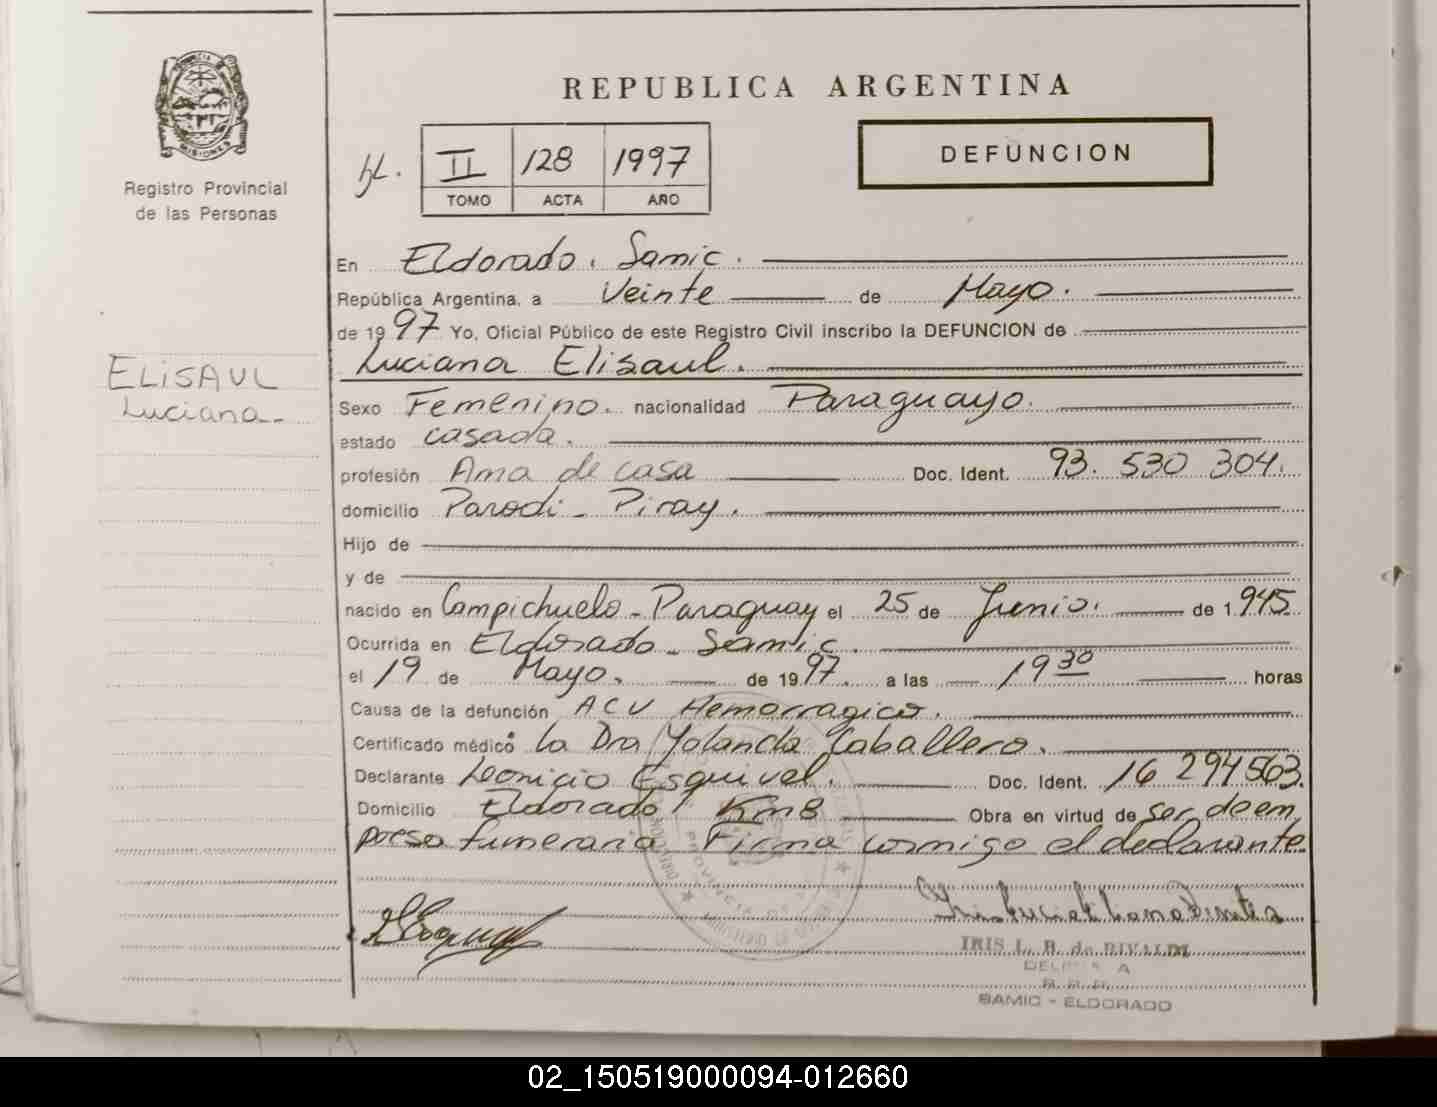 PROVINCIA DE
MISIONES
Registro Provincial
de las Personas
ELISAUL
Luciana
REPUBLICA ARGENTINA
II 128 1997
TOMO ACTA AÑO
DEFUNCION
En Eldorado. Samic.
República Argentina, a Veinte de Mayo.
de 1997 Yo, Oficial Público de este Registro Civil inscribo la DEFUNCION de
Luciana Elisaul.
Sexo Femenino. nacionalidad Paraguayo.
estado casada.
profesión Ama de casa Doc. Ident. 93. 530 304.
domicilio Parodi - Piray.
Hijo de
y de
nacido en Campichuelo - Paraguay el 25 de Junio. de 1.945
Ocurrida en Eldorado - Samic.
el 19 de Mayo. de 1997. a las 19 30 horas
Causa de la defunción ACV Hemorragico.
Certificado médico La Dra Yolanda Caballero.
Declarante Leonicio Esquivel. Doc. Ident. 16 294563.
Domicilio Eldorado Km8 Obra en virtud de ser de em
presa funeraria Firma conmigo el declarante.
IRIS L. B. de RIVALDI
SAMIC - ELDORADO
02_150519000094-012660